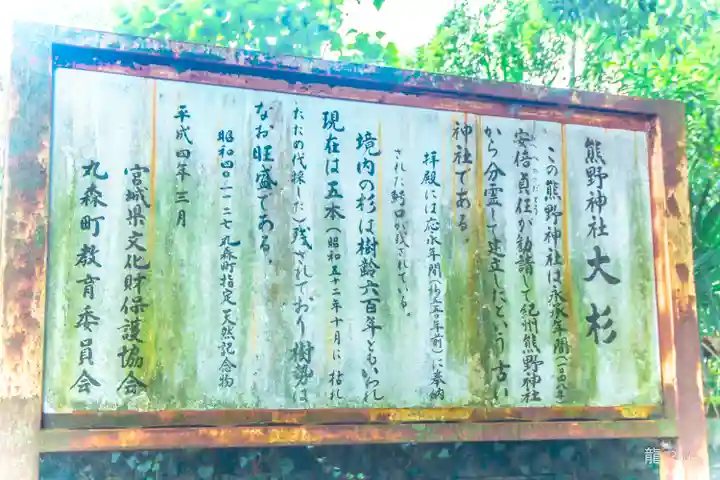 熊野神社 大杉
この熊野神社は永承年間(一〇四六年)
安倍貞任が勧請して紀州熊野神社
から分霊して建立したという古い
神社である。
拝殿には応永年間(約五五〇年前)に奉納
された鰐口が残されている。
境内の杉は樹齢六百年ともいわれ
現在は五本(昭和五十二年十月に枯れ
たため伐採した)残されており樹勢は
なお旺盛である。
昭和四〇・一一・二七 丸森町指定 天然記念物
平成四年三月
宮城県文化財保護協会
丸森町教育委員会
龍